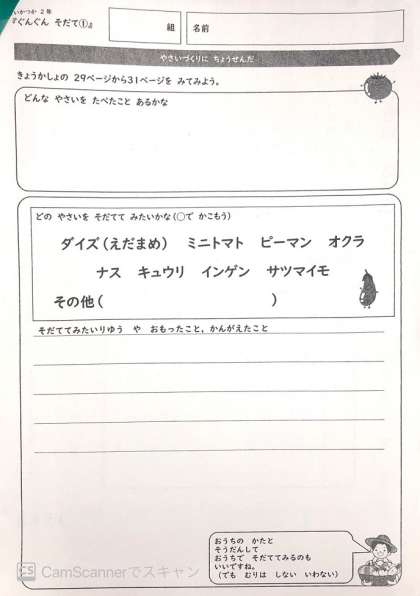 せいかつか 2年
『ぐんぐん そだて①』
組
名前
やさいづくりに ちょうせんだ
きょうかしょの 29ページから31ページを みてみよう。
どんな やさいを たべたこと あるかな
どの やさいを そだてて みたいかな(○で かこもう)
ダイズ(えだまめ) ミニトマト ピーマン オクラ
ナス キュウリ インゲン サツマイモ
その他( )
そだててみたいりゆう や おもったこと,かんがえたこと
おうちの かたと
そうだんして
おうちで そだててみるのも
いいですね。
(でも むりは しない いわない)
CS CamScannerでスキャン